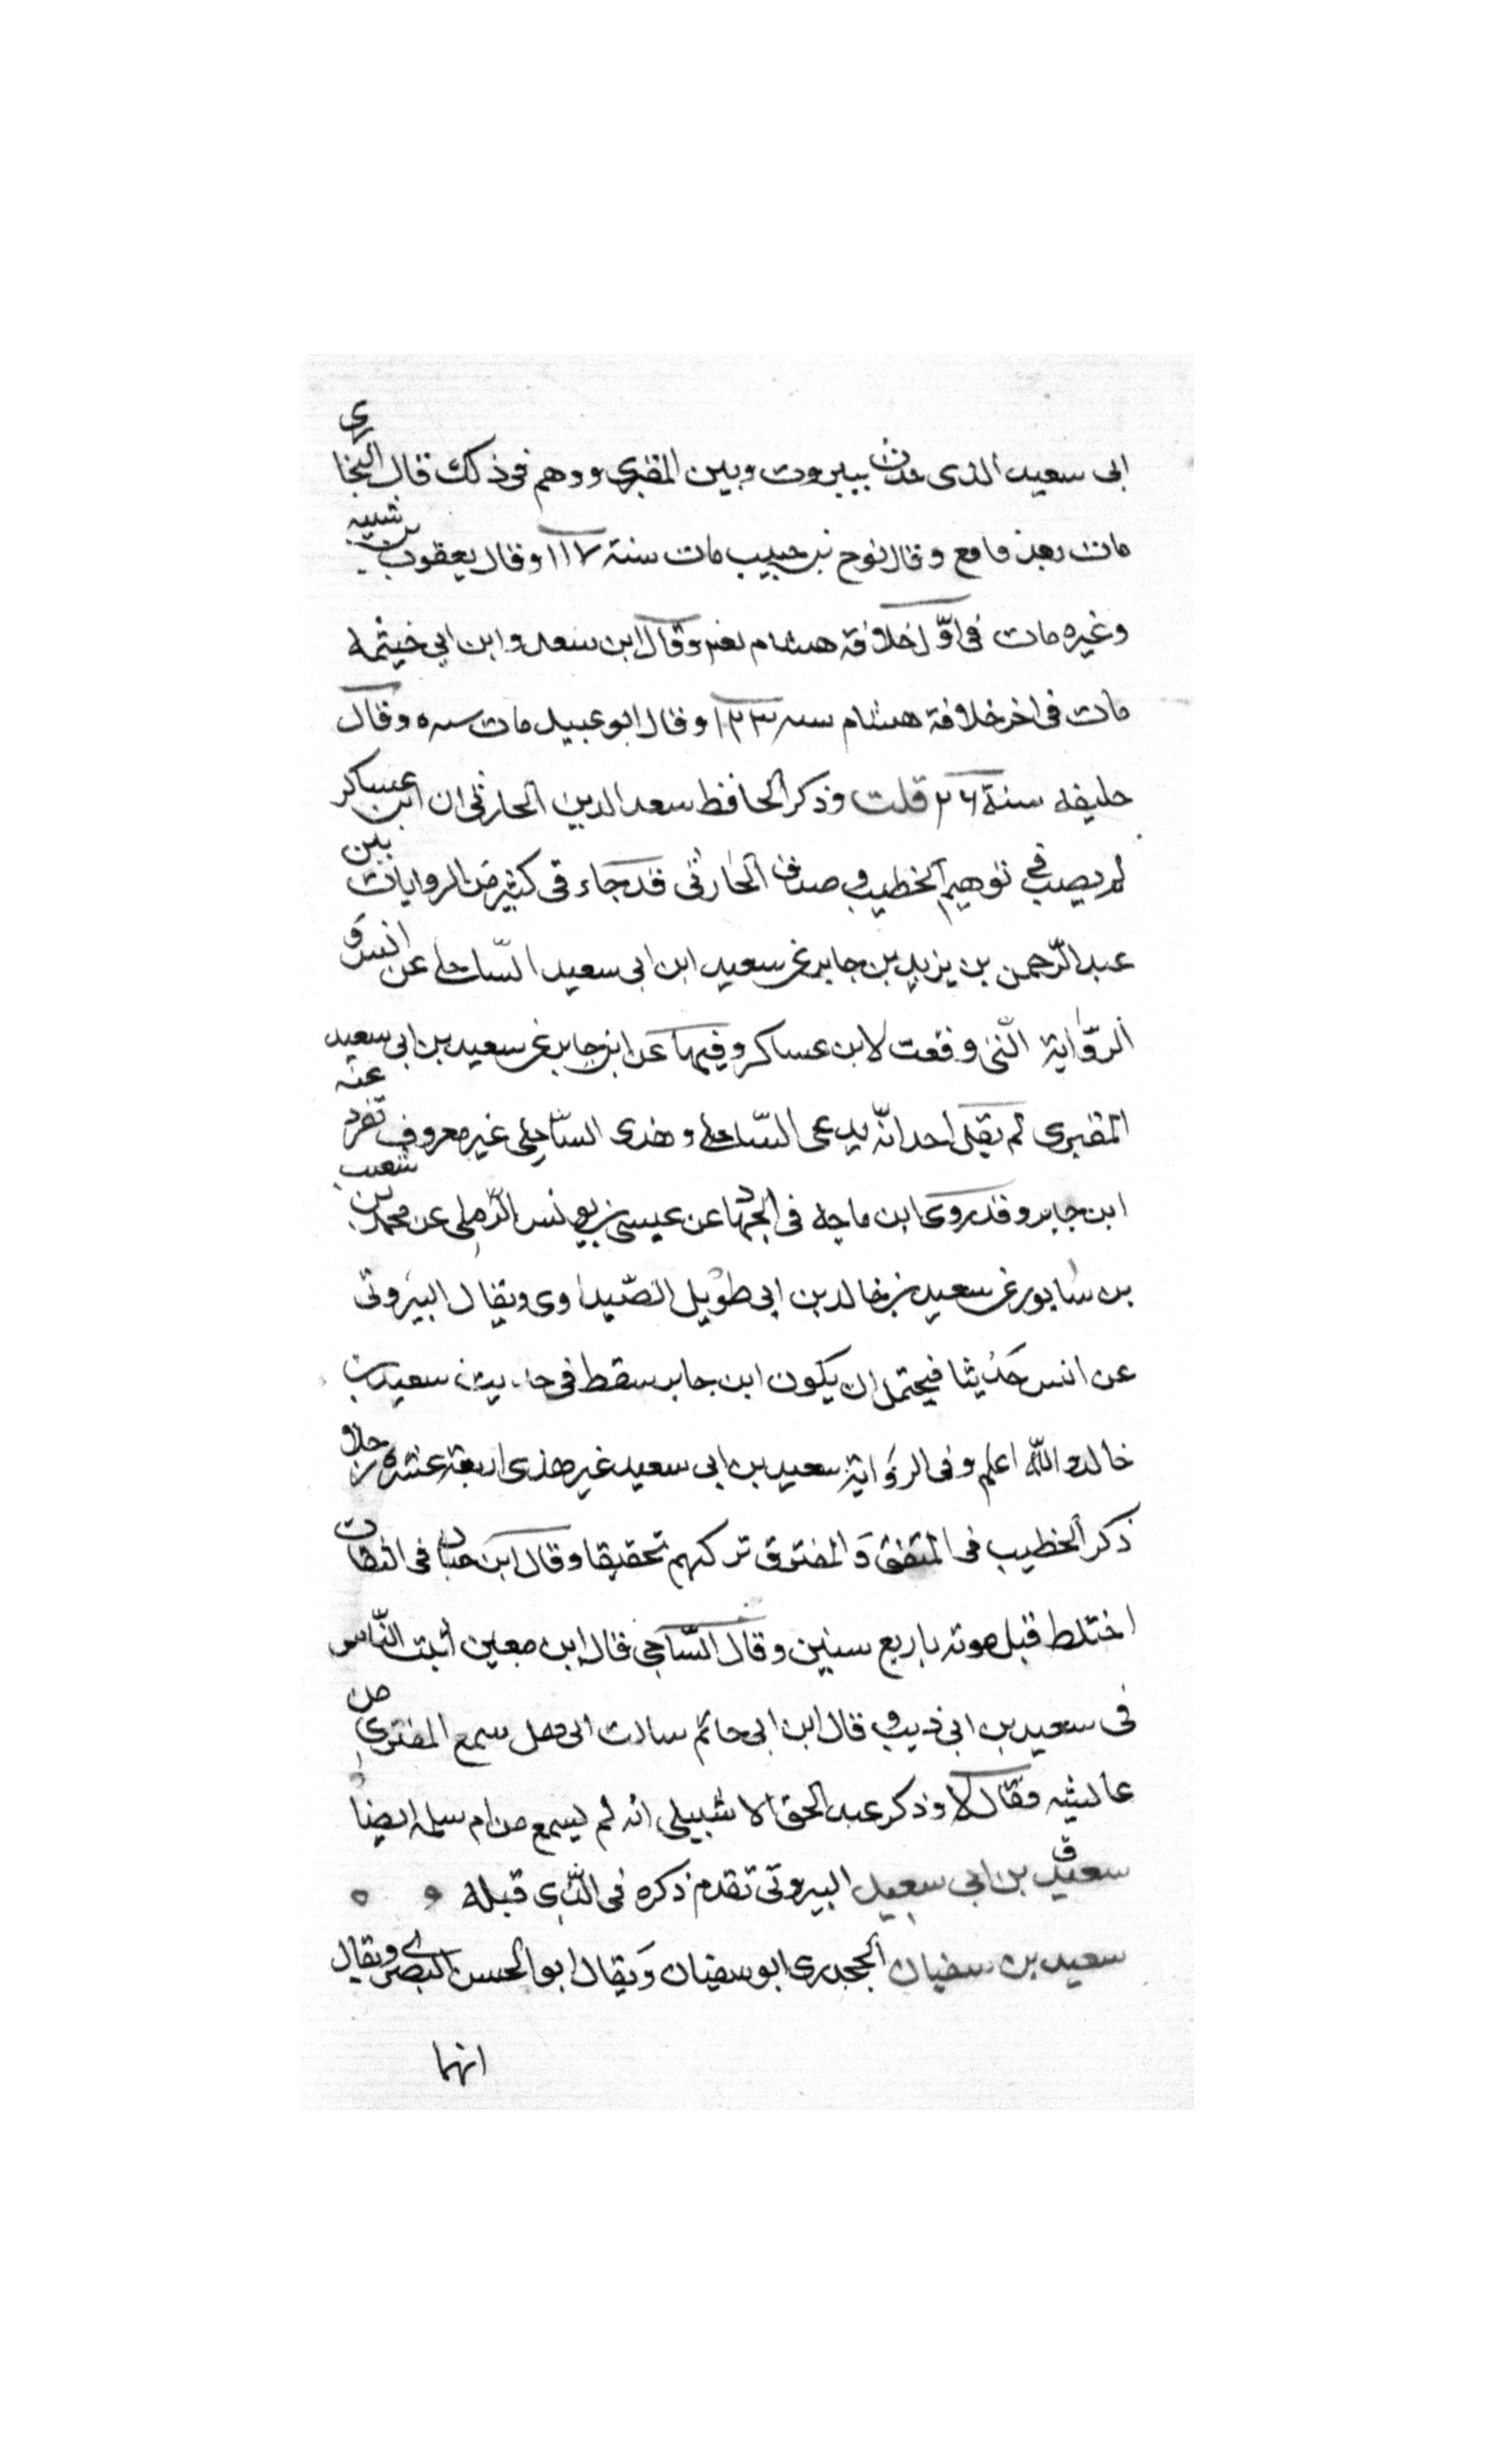 ابى سعيد الذى حدث ببيروت وبين المقبرى ووهم فى ذلك قال البخارى
مات بعد نافع وقال نوح بن حبيب مات سنة ١١٧ وقال يعقوب بن شيبه
وغيره مات فى اوّل خلافة هشام وقال ابن سعد وابن ابى خيثمه
مات فى اخر خلافة هشام سنه ١٢٣ وقال ابو عبيد مات سنه وقال
خليفه سنة ٢٦ قلت وذكر الحافظ سعد الدين الحارثى ان ابن عساكر
لم يصب فى توهيم الخطيب وصدق الحارثى قد جاء فى كثير من الروايات بين
عبد الرّحمن بن يزيد بن جابر عن سعيد ابن ابى سعيد السّاحلى عن انس و
الرّواية الّتى وقعت لابن عساكر وفيها عن ابن جابر عن سعيد بن ابى سعيد
المقبرى لم يقل احد انّه يدعى السّاحلى وهذى السّاحلى غير معروف تفرد عنه
ابن جابر وقد روى ابن ماجه فى الجهاد عن عيسى بن يونس الرّملى عن محمد بن شعيب
بن شابور عن سعيد بن خالد بن ابى طويل الصّيداوى ويقال البيروتى
عن انس حديثا فيحتمل ان يكون ابن جابر سقط فى حديث سعيد بن
خالد واللّه اعلم وفى الرواية سعيد بن ابى سعيد غير هذى اربعة عشره رجلا
ذكر الخطيب فى المتفق والمفترق تركهم تحقيقا وقال ابن حبان فى الثقات
اختلط قبل موته باربع سنين وقال السّاجى قال ابن معين اثبت النّاس
فى سعيد بن ابى ذيب وقال ابن ابى حاتم سالت ابى هل سمع المقبرى من
عائشه فقال لا وذكر عبد الحق الاشبيلى انه لم يسمع من ام سلمه ايضاً
سعيد بن ابى سعيد البيروتى تقدم ذكره فى الّذى قبله
سعيد بن سفيان الجحدرى ابو سفيان ويقال ابو الحسن البصرى ويقال
انهما